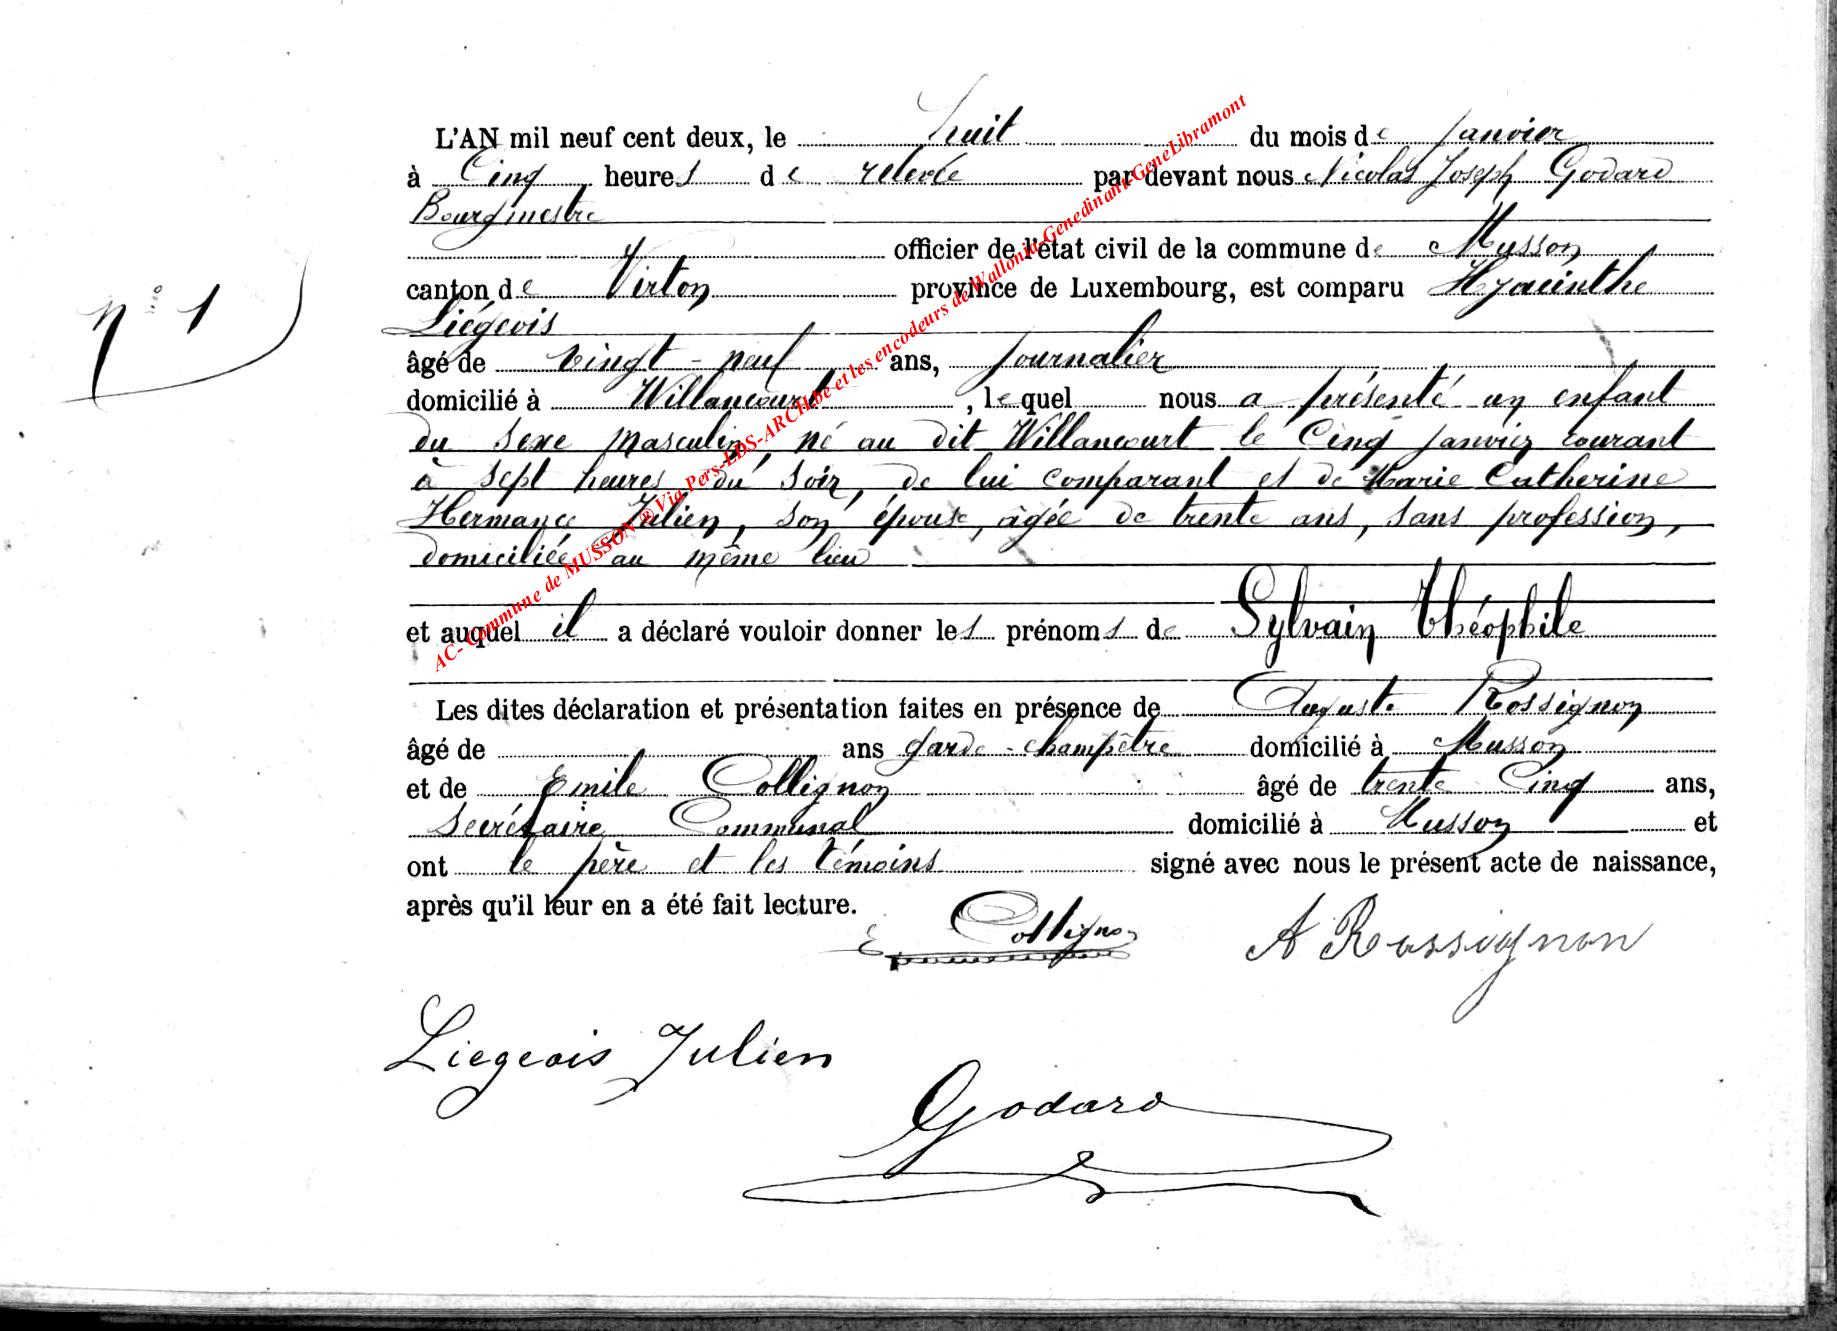 L'AN mil neuf cent deux, le huit du mois de janvier
à Cinq heures de relevée par devant nous Nicolas Joseph Godard
Bourgmestre
officier de l'état civil de la commune de Musson
canton de Virton province de Luxembourg, est comparu Hyacinthe
n° 1
Liégeois
âgé de vingt-neuf ans, journalier
domicilié à Willancourt, lequel nous a présenté un enfant
du sexe masculin, né au dit Willancourt le Cinq janvier courant
à sept heures du soir, de lui comparant et de Marie Catherine
Hermance Julien, son épouse, âgée de trente ans, sans profession,
domiciliée au même lieu
et auquel il a déclaré vouloir donner les prénoms de Sylvain Théophile
Les dites déclaration et présentation faites en présence de Auguste Rossignon
âgé de ans garde-champêtre domicilié à Musson
et de Emile Collignon âgé de trente Cinq ans,
Secrétaire Communal domicilié à Musson et
ont le père et les témoins signé avec nous le présent acte de naissance,
après qu'il leur en a été fait lecture.
E Collignon A Rossignon
Liegeois Julien
Godard
AC- Commune de MUSSON ® Via Pers-LDS-ARCH.be et les encodeurs de Wallonia-Genedinant-GeneLibramont